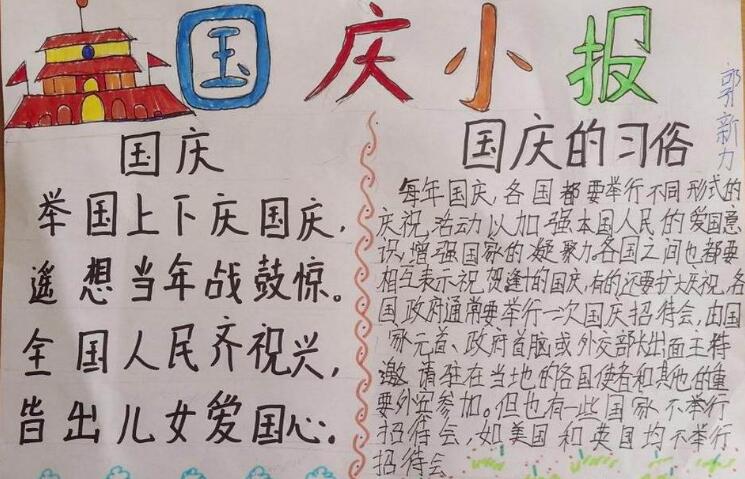 国庆小报
郭新力
国庆
举国上下庆国庆，
遥想当年战鼓惊。
全国人民齐祝兴，
皆出儿女爱国心。
国庆的习俗
每年国庆，各国都要举行不同形式的
庆祝活动以加强本国人民的爱国意
识，增强国家的凝聚力。各国之间也都要
相互表示祝贺逢十的国庆，有的还要扩大庆祝，各
国政府通常要举行一次国庆招待会，由国
家元首、政府首脑或外交部长出面主持
邀请驻在当地的各国使者和其他的重
要外宾参加。但也有一些国家不举行
招待会，如美国和英国均不举行
招待会